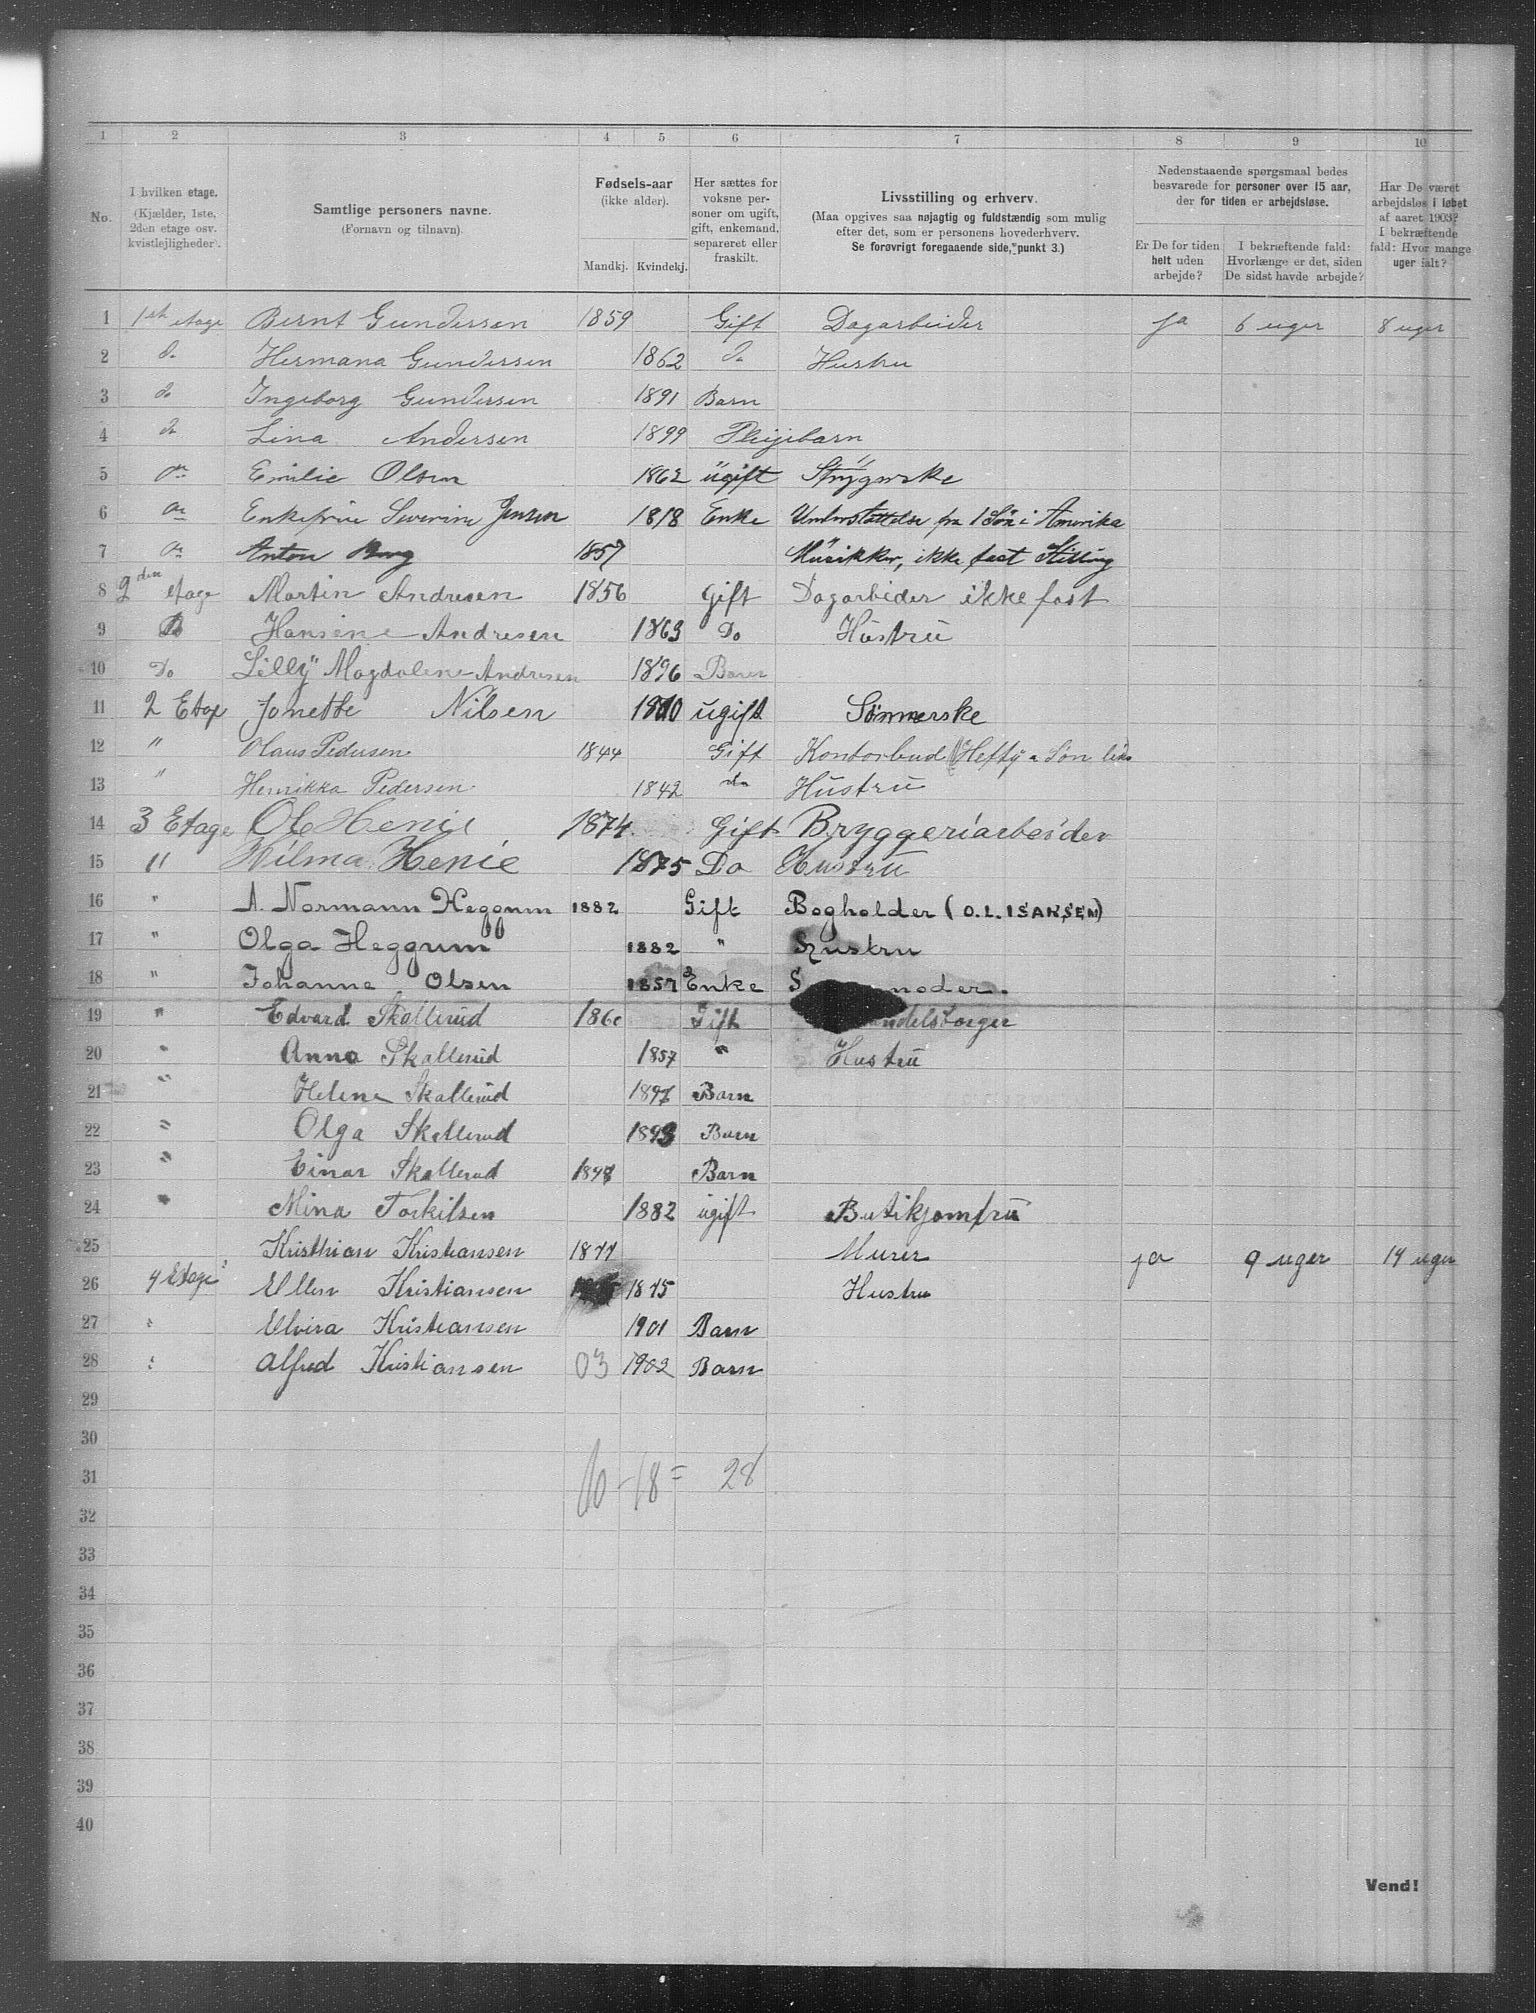 1 2 3 4 5 6 7 8 9 10
No.
I hvilken etage. (Kjælder, 1ste, 2den etage osv. kvistlejligheder).
Samtlige personers navne. (Fornavn og tilnavn).
Fødsels-aar (ikke alder).
Mandkj. Kvindekj.
Her sættes for voksne personer om ugift, gift, enkemand, separeret eller fraskilt.
Livsstilling og erhverv. (Maa opgives saa nøjagtig og fuldstændig som mulig efter det, som er personens hovederhverv. Se forøvrigt foregaaende side, punkt 3.)
Nedenstaaende spørgsmaal bedes besvarede for personer over 15 aar, der for tiden er arbejdsløse.
Er De for tiden helt uden arbejde?
I bekræftende fald: Hvorlænge er det, siden De sidst havde arbejde?
Har De været arbejdsløs i løbet af aaret 1903? I bekræftende fald: Hvor mange uger ialt?
1 1ste etage Bernt Gundersen 1859 Gift Dagarbeider ja 6 uger 8 uger
2 do Hermana Gundersen 1862 do Hustru
3 do Ingeborg Gundersen 1891 Barn
4 do Lina Andersen 1899 Pleijebarn
5 do Emilie Olsen 1862 ugift Strygerske
6 do Enkefrue Severine Jensen 1818 Enke Understøttelse fra 1 Søn i Amerika
7 do Anton Berg 1857 Musikker, ikke fast Stilling
8 2den etage Martin Andresen 1856 Gift Dagarbeider ikke fast
9 Do Hansine Andresen 1863 Do Hustru
10 Do Lilly Magdalene Andresen 1896 Barn
11 2 Etag Jonette Nilsen ugift Sømmerske
12 " Olaus Pedersen 1844 Gift Kontorbud Hefty & Søn
13 " Henrikka Pedersen 1842 do Hustru
14 3 Etage Ol Henie 1874 Gift Bryggeriarbeider
15 " Hilma Henie 1875 Do Hustru
16 " A. Normann Heggum 1882 Gift Bogholder (O.L. ISAKSEN)
17 " Olga Heggum 1882 " Hustru
18 " Johanne Olsen 1857 Enke S moder.
19 " Edvard Skallerud Gift ndelsborger
20 " Anna Skallerud 1857 " Hustru
21 " Helene Skallerud 1897 Barn
22 " Olga Skallerud 1893 Barn
23 " Einar Skallerud Barn
24 " Mina Torkilsen 1882 ugift Butikjomfru
25 Kristhian Kristiansen 1877 Murer ja 9 uger 14 uger
26 4 Etage Ellen Kristiansen 1875 Hustru
27 " Elvira Kristiansen 1901 Barn
28 " Alfred Kristiansen 03 1902 Barn
29
30
31 10-18= 28
32
33
34
35
36
37
38
39
40
Vend!